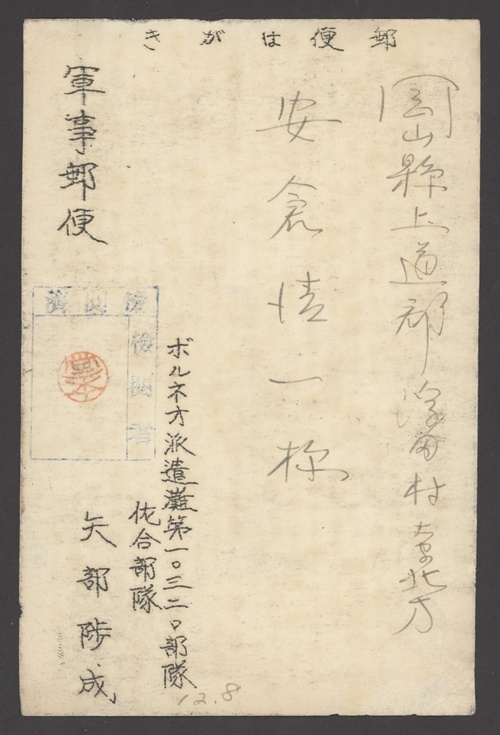 郵便はがき
岡山縣上道郡浮田村草ヶ部北方
安倉清一様
軍事郵便
検閲済
検閲者
ボルネオ派遣灘第一〇三二〇部隊
佐合部隊
矢部陟成
12.8